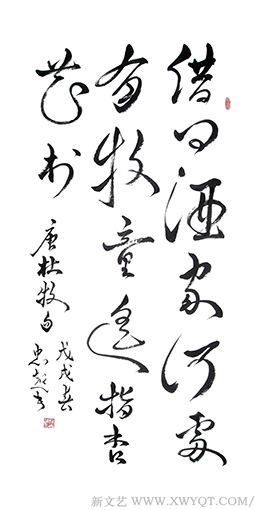 借问酒家何處
有牧童遥指杏
花村
唐杜牧句
戊戌春
忠 书
新文艺 / WWW.XWYQT.COM